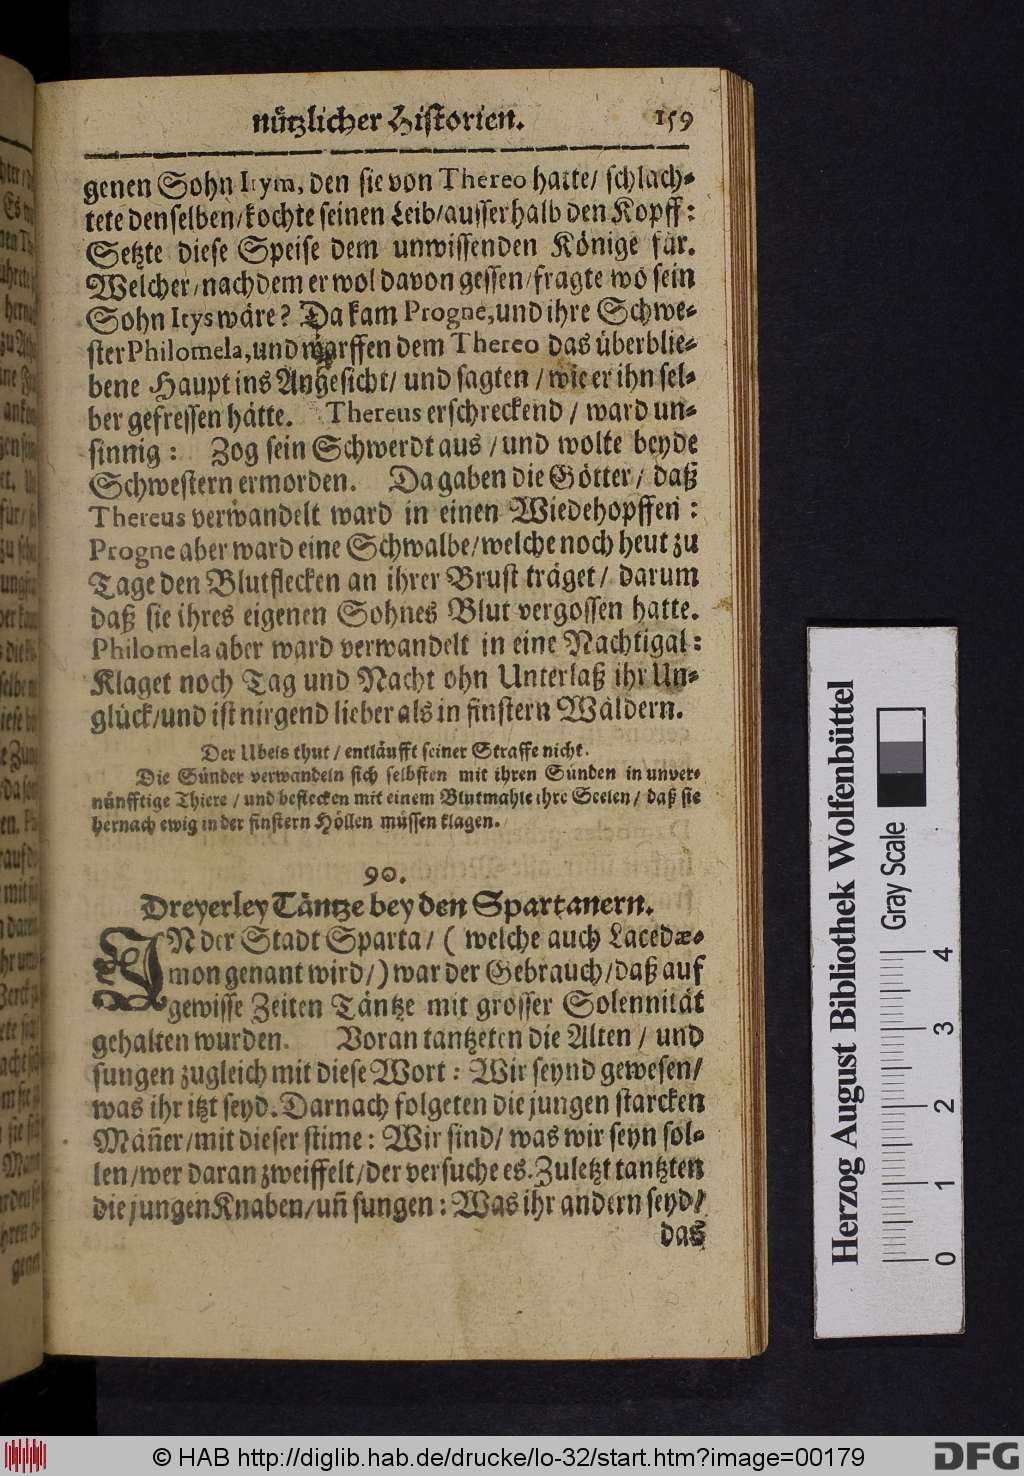 nützlicher Historien. 159
genen Sohn Itym, den sie von Thereo hatte/ schlach-
tete denselben/ kochte seinen Leib/ ausserhalb den Kopff:
Setzte diese Speise dem unwissenden Könige für.
Welcher/ nachdem er wol davon gessen/ fragte wo sein
Sohn Itys wäre? Da kam Progne, und ihre Schwe-
ster Philomela, und warffen dem Thereo das überblie-
bene Haupt ins Angesicht/ und sagten/ wie er ihn sel-
ber gefressen hätte. Thereus erschreckend/ ward un-
sinnig: Zog sein Schwerdt aus/ und wolte beyde
Schwestern ermorden. Da gaben die Götter/ daß
Thereus verwandelt ward in einen Wiedehopffen:
Progne aber ward eine Schwalbe/ welche noch heut zu
Tage den Blutflecken an ihrer Brust träget/ darum
daß sie ihres eigenen Sohnes Blut vergossen hatte.
Philomela aber ward verwandelt in eine Nachtigal:
Klaget noch Tag und Nacht ohn Unterlaß ihr Un-
glück/ und ist nirgend lieber als in finstern Wäldern.
Der Ubels thut/ entläufft seiner Straffe nicht.
Die Sünder verwandeln sich selbsten mit ihren Sünden in unver-
nünfftige Thiere/ und beflecken mit einem Blutmahle ihre Seelen/ daß sie
hernach ewig in der finstern Höllen müssen klagen.
90.
Dreyerley Täntze bey den Spartanern.
IN der Stadt Sparta/ ( welche auch Lacedæ-
mon genant wird/) war der Gebrauch/ daß auf
gewisse Zeiten Täntze mit grosser Solennität
gehalten wurden. Voran tantzeten die Alten/ und
sungen zugleich mit diese Wort: Wir seynd gewesen/
was ihr itzt seyd. Darnach folgeten die jungen starcken
Mäñer/ mit dieser stime: Wir sind/ was wir seyn sol-
len/ wer daran zweiffelt/ der versuche es. Zuletzt tantzten
die jungen Knaben/ uñ sungen: Was ihr andern seyd/
das
Herzog August Bibliothek Wolfenbüttel
Gray Scale
0 1 2 3 4
© HAB http://diglib.hab.de/drucke/lo-32/start.htm?image=00179
DFG